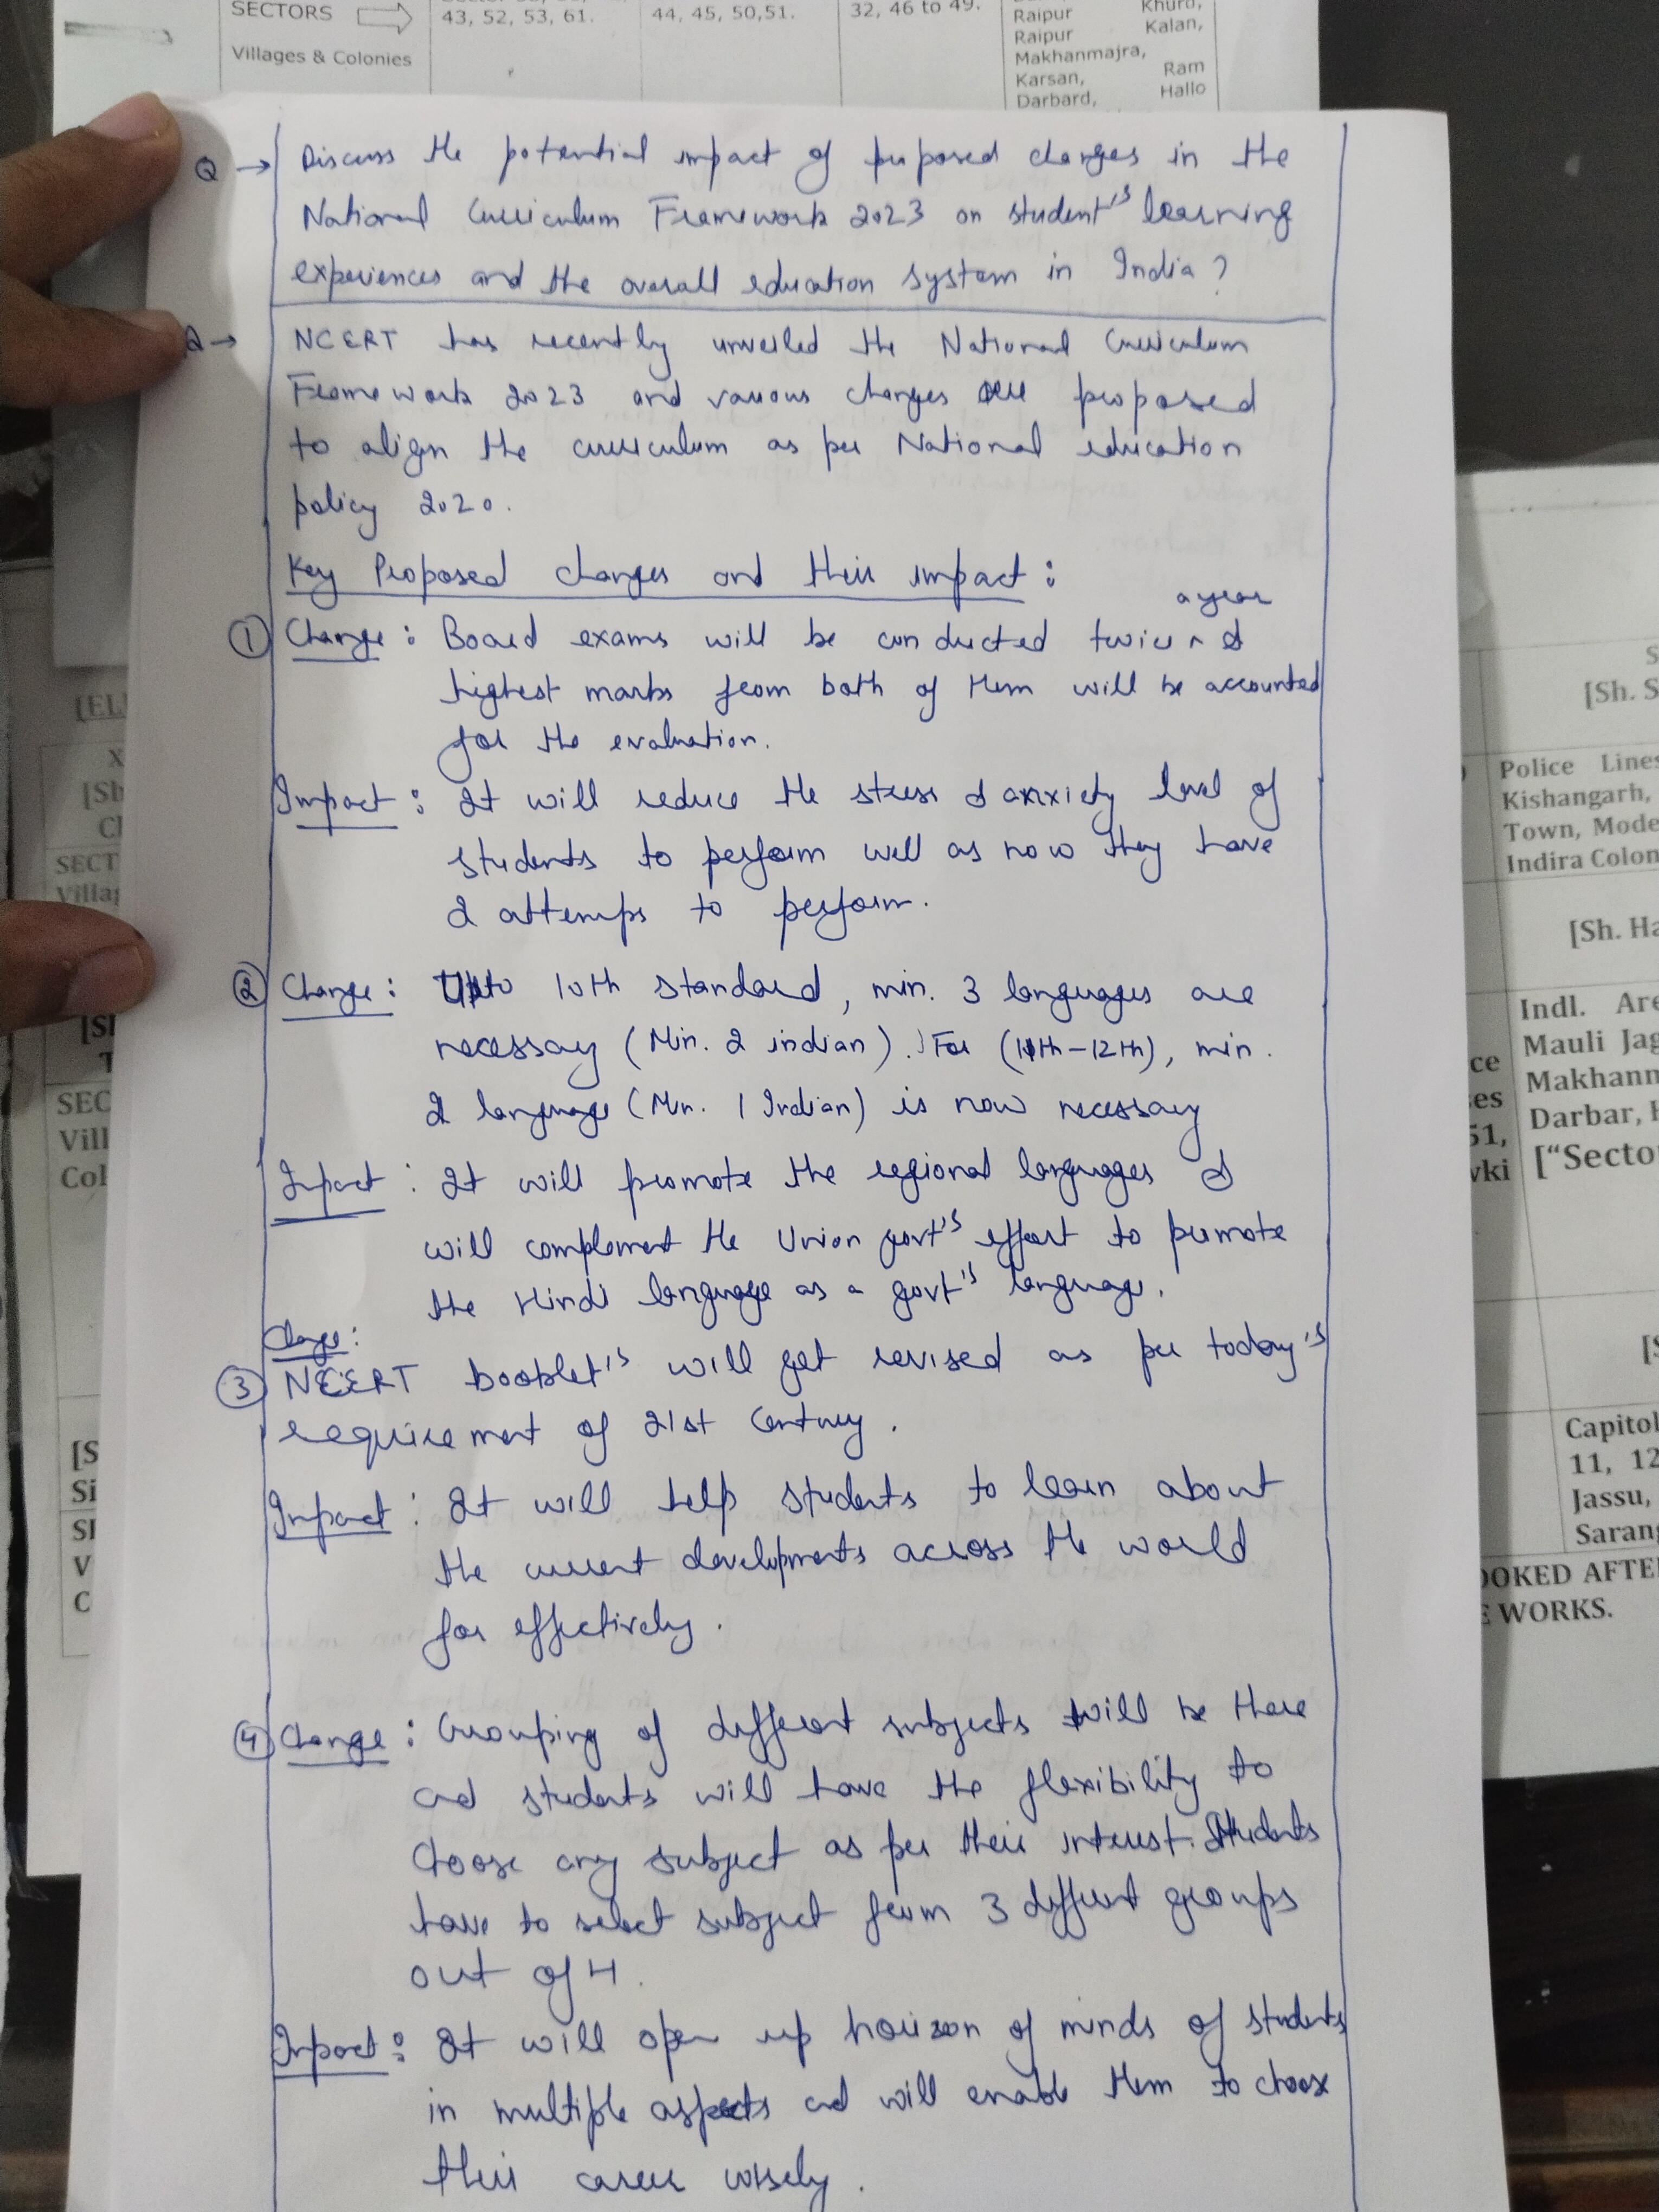 SECTORS
43, 52, 53, 61.
44, 45, 50,51.
32, 46 to 49.
Villages & Colonies
Raipur Khurd,
Raipur Kalan,
Makhanmajra,
Karsan, Ram
Darbard, Hallo
Q → Discuss the potential impact of proposed changes in the
National Curriculum Framework 2023 on student's learning
experiences and the overall education system in India?
NCERT has recently unveiled the National Curriculum
Framework 2023 and various changes are proposed
to align the curriculum as per National education
policy 2020.
Key Proposed changes and their impact:
a year
① Change: Board exams will be conducted twice ^ &
highest marks from both of them will be accounted
for the evaluation.
Impact: It will reduce the stress & anxiety level of
students to perform well as now they have
2 attemps to perform.
② Change: Upto 10th standard, min. 3 languages are
necessary (Min. 2 indian). For (11th-12th), min.
2 language (Min. 1 Indian) is now necessary
Impact: It will promote the regional languages &
will complement the Union govt's effort to promote
the Hindi language as a govt's language.
Change:
③ NCERT booklet's will get revised as per today's
requirement of 21st Century.
Impact: It will help students to learn about
the current developments across the world
for effectively.
④ Change: Grouping of different subjects will be there
and students will have the flexibility to
choose any subject as per their interest. Students
have to select subject from 3 different groups
out of 4.
Impact: It will open up horizon of minds of students
in multiple aspects and will enable them to choose
their career wisely.
[Sh. S
Police Lines
Kishangarh,
Town, Mode
Indira Colon
[Sh. Ha
Indl. Are
Mauli Jag
Makhanm
Darbar, H
["Secto
ce
es
51,
wki
Capitol
11, 12
Jassu,
Sarang
OOKED AFTE
E WORKS.
[EL
[Sh
SECT
Villag
SEC
Vill
Col
[S
Si
V
C